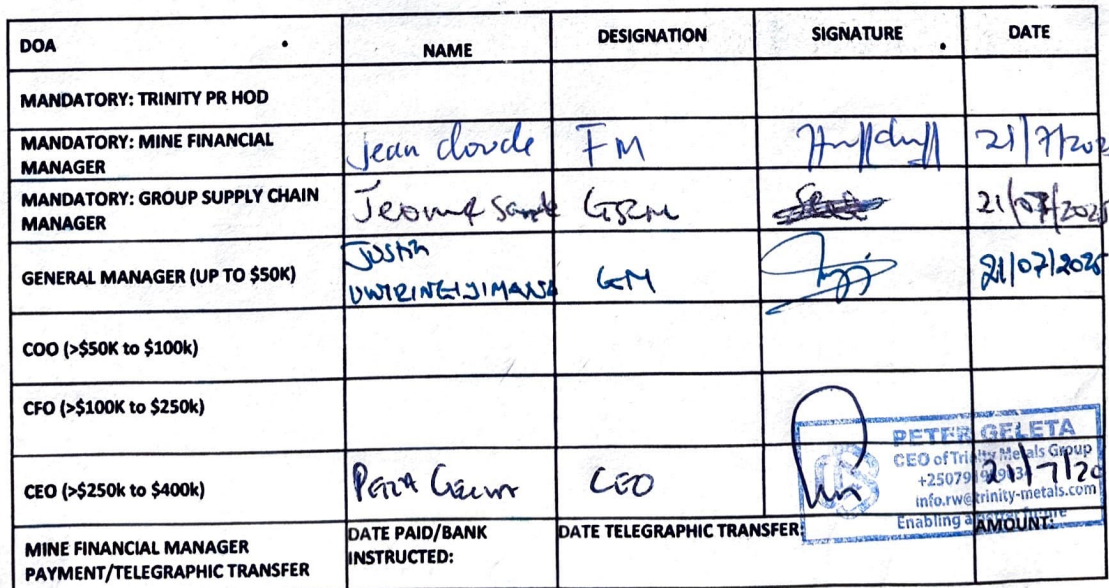 DOA NAME DESIGNATION SIGNATURE DATE
MANDATORY: TRINITY PR HOD
MANDATORY: MINE FINANCIAL
MANAGER
Jean cloude FM 21/7/202
MANDATORY: GROUP SUPPLY CHAIN
MANAGER
GSCM 21/07/2025
GENERAL MANAGER (UP TO $50K)
Justin
UWIRINGIYIMANA GM 21/07/2025
COO (>$50K to $100k)
CFO (>$100K to $250k)
PETER GELETA
CEO of Trinity Metals Group
info.rw@trinity-metals.com
CEO (>$250k to $400k) CEO 21/7/20
MINE FINANCIAL MANAGER
PAYMENT/TELEGRAPHIC TRANSFER
DATE PAID/BANK
INSTRUCTED:
DATE TELEGRAPHIC TRANSFER:
AMOUNT: